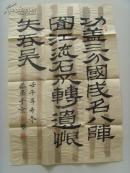 功盖三分國成名八陣
圖江流石不转遺恨
失吞吴
壬午年